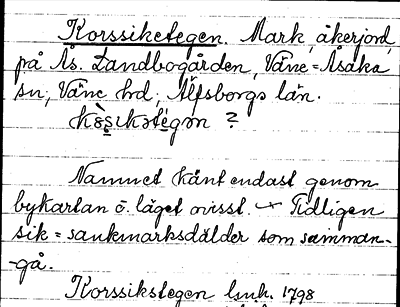 Korssiketegen. Mark, åkerjord,
på Ås. Landbogården, Väne-Åsaka
sn, Väne hd, Älfsborgs län.
kòsikstégən ?
Namnet känt endast genom
bykartan o. läget ovisst. — Tidligen
sik = sankmarksdälder som samman-
-gå.
Korssikstegen lsnh. 1798